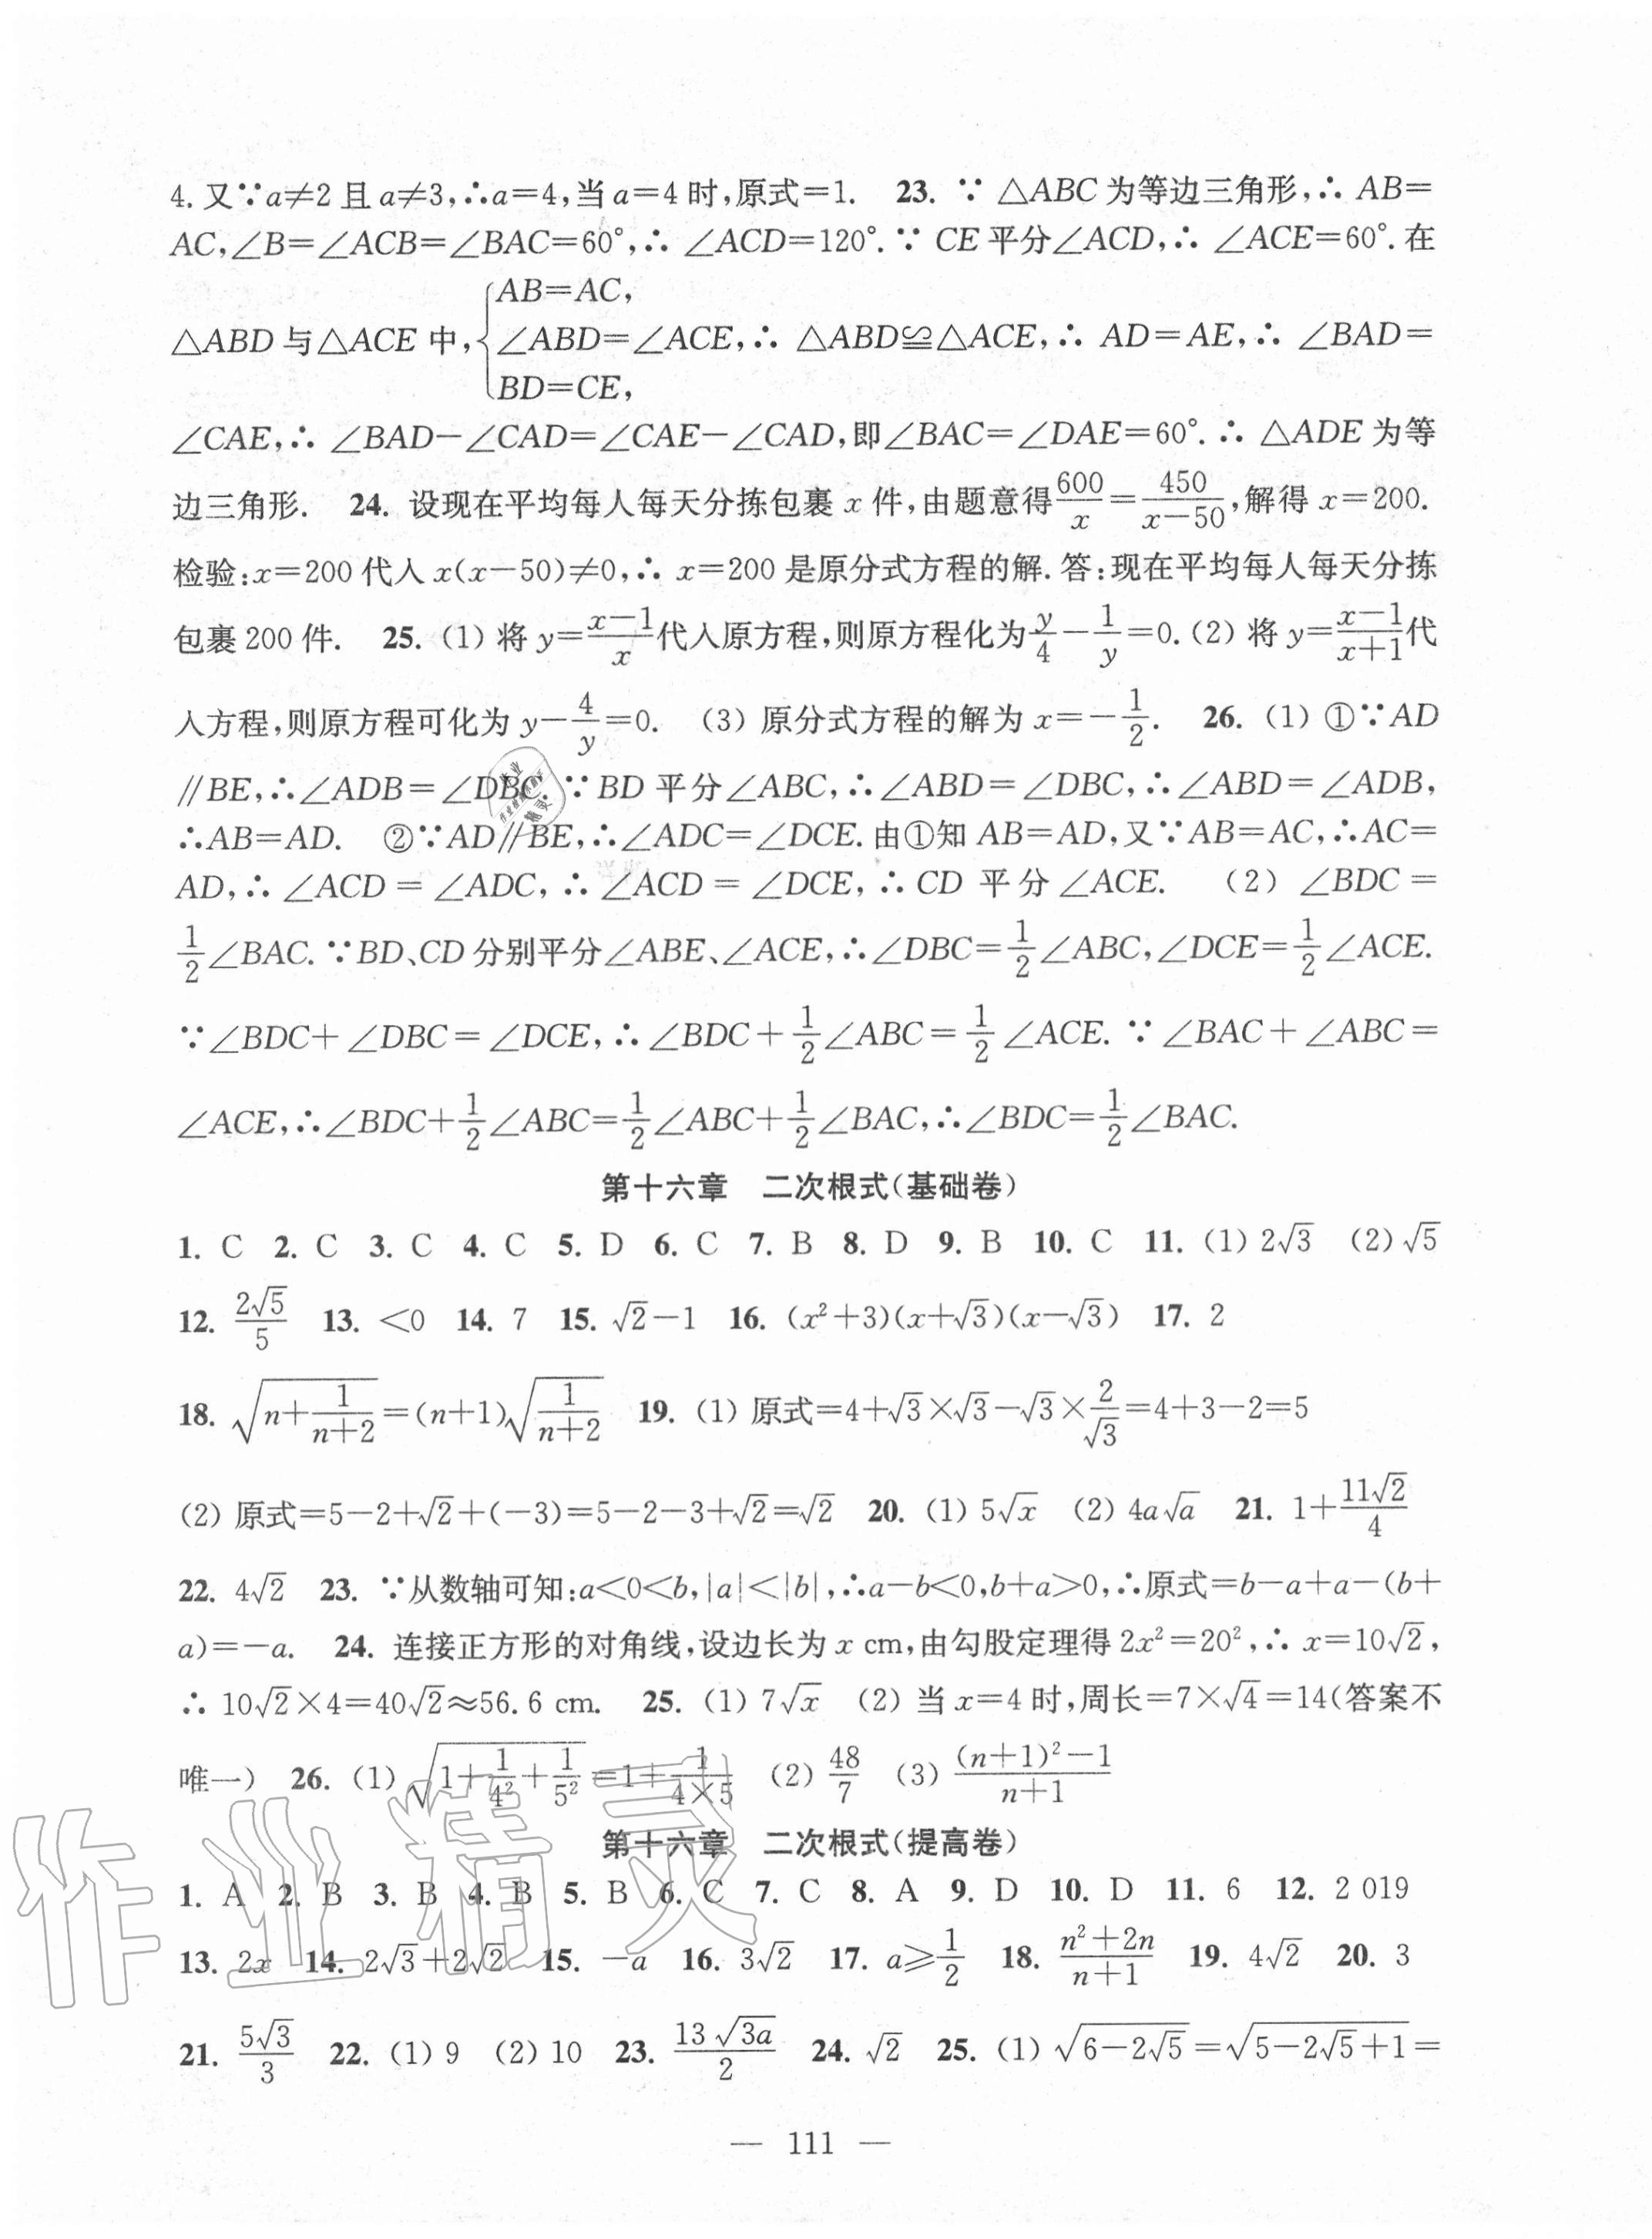 4. 又∵a≠2 且 a≠3,∴a=4,当 a=4 时,原式=1. 23. ∵ △ABC 为等边三角形,∴ AB=
AC,∠B=∠ACB=∠BAC=60°,∴ ∠ACD=120°.∵ CE 平分∠ACD,∴ ∠ACE=60°. 在
△ABD 与△ACE 中,{AB=AC, ∠ABD=∠ACE, BD=CE, ∴ △ABD≌△ACE,∴ AD=AE,∴ ∠BAD=
∠CAE,∴ ∠BAD-∠CAD=∠CAE-∠CAD,即∠BAC=∠DAE=60°.∴ △ADE 为等
边三角形. 24. 设现在平均每人每天分拣包裹 x 件,由题意得600/x=450/(x-50),解得 x=200.
检验:x=200 代入 x(x-50)≠0,∴ x=200 是原分式方程的解. 答:现在平均每人每天分拣
包裹 200 件. 25. (1) 将 y=(x-1)/x代入原方程,则原方程化为y/4-1/y=0. (2) 将 y=(x-1)/(x+1)代
入方程,则原方程可化为 y-4/y=0. (3) 原分式方程的解为 x=-1/2. 26. (1) ①∵AD
∥BE,∴∠ADB=∠DBC.∵BD 平分∠ABC,∴∠ABD=∠DBC,∴∠ABD=∠ADB,
∴AB=AD. ②∵AD∥BE,∴∠ADC=∠DCE. 由①知 AB=AD,又∵AB=AC,∴AC=
AD,∴ ∠ACD = ∠ADC, ∴ ∠ACD = ∠DCE, ∴ CD 平分∠ACE. (2) ∠BDC =
1/2∠BAC. ∵BD、CD 分别平分∠ABE、∠ACE,∴∠DBC=1/2∠ABC,∠DCE=1/2∠ACE.
∵∠BDC+∠DBC=∠DCE,∴∠BDC+1/2∠ABC=1/2∠ACE. ∵ ∠BAC+∠ABC=
∠ACE,∴∠BDC+1/2∠ABC=1/2∠ABC+1/2∠BAC,∴∠BDC=1/2∠BAC.
第十六章 二次根式(基础卷)
1. C 2. C 3. C 4. C 5. D 6. C 7. B 8. D 9. B 10. C 11. (1) 2√3 (2) √5
12. 2√5/5 13. <0 14. 7 15. √2-1 16. (x²+3)(x+√3)(x-√3) 17. 2
18. √(n+1/(n+2))=(n+1)√(1/(n+2)) 19. (1) 原式=4+√3×√3-√3×2/√3=4+3-2=5
(2) 原式=5-2+√2+(-3)=5-2-3+√2=√2 20. (1) 5√x (2) 4a√a 21. 1+11√2/4
22. 4√2 23. ∵从数轴可知:a<0<b,|a|<|b|,∴a-b<0,b+a>0,∴原式=b-a+a-(b+
a)=-a. 24. 连接正方形的对角线,设边长为 x cm,由勾股定理得 2x²=20²,∴ x=10√2,
∴ 10√2×4=40√2≈56.6 cm. 25. (1) 7√x (2) 当 x=4 时,周长=7×√4=14(答案不
唯一) 26. (1) √(1+1/4²+1/5²)=1+1/(4×5) (2) 48/7 (3) ((n+1)²-1)/(n+1)
第十六章 二次根式(提高卷)
1. A 2. B 3. B 4. B 5. B 6. C 7. C 8. A 9. D 10. D 11. 6 12. 2 019
13. 2x 14. 2√3+2√2 15. -a 16. 3√2 17. a⩾1/2 18. (n²+2n)/(n+1) 19. 4√2 20. 3
21. 5√3/3 22. (1) 9 (2) 10 23. 13√(3a)/2 24. √2 25. (1) √(6-2√5)=√(5-2√5+1)=
— 111 —
作业精灵